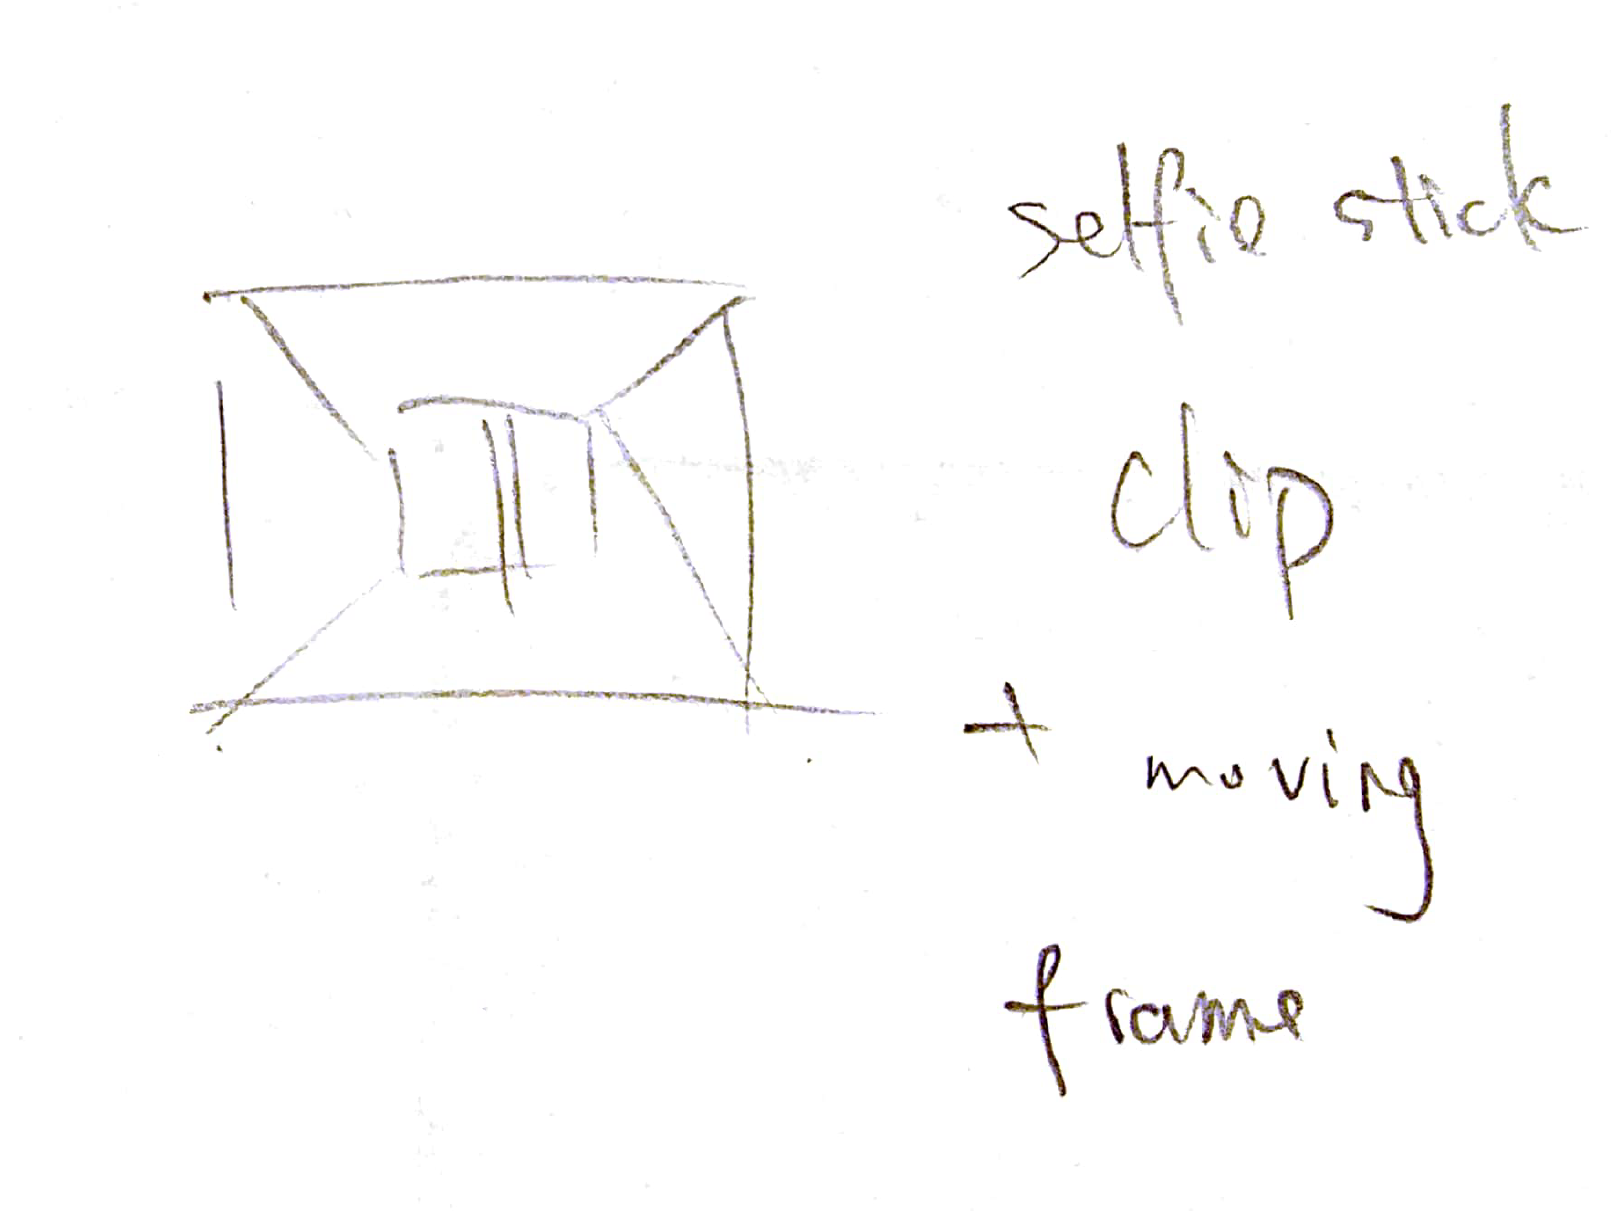 selfie stick
clip
+ moving
frame